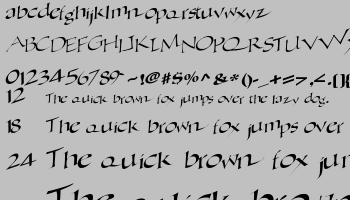 abcdefghijklmnopqrstuvwxyz
ABCDEFGHIJKLMNOPQRSTUVW
0123456789~!@#$%^&*()-_+=>,<.[]{
12 The quick brown fox jumps over the lazy dog.
18 The quick brown fox jumps over
24 The quick brown fox
The quick